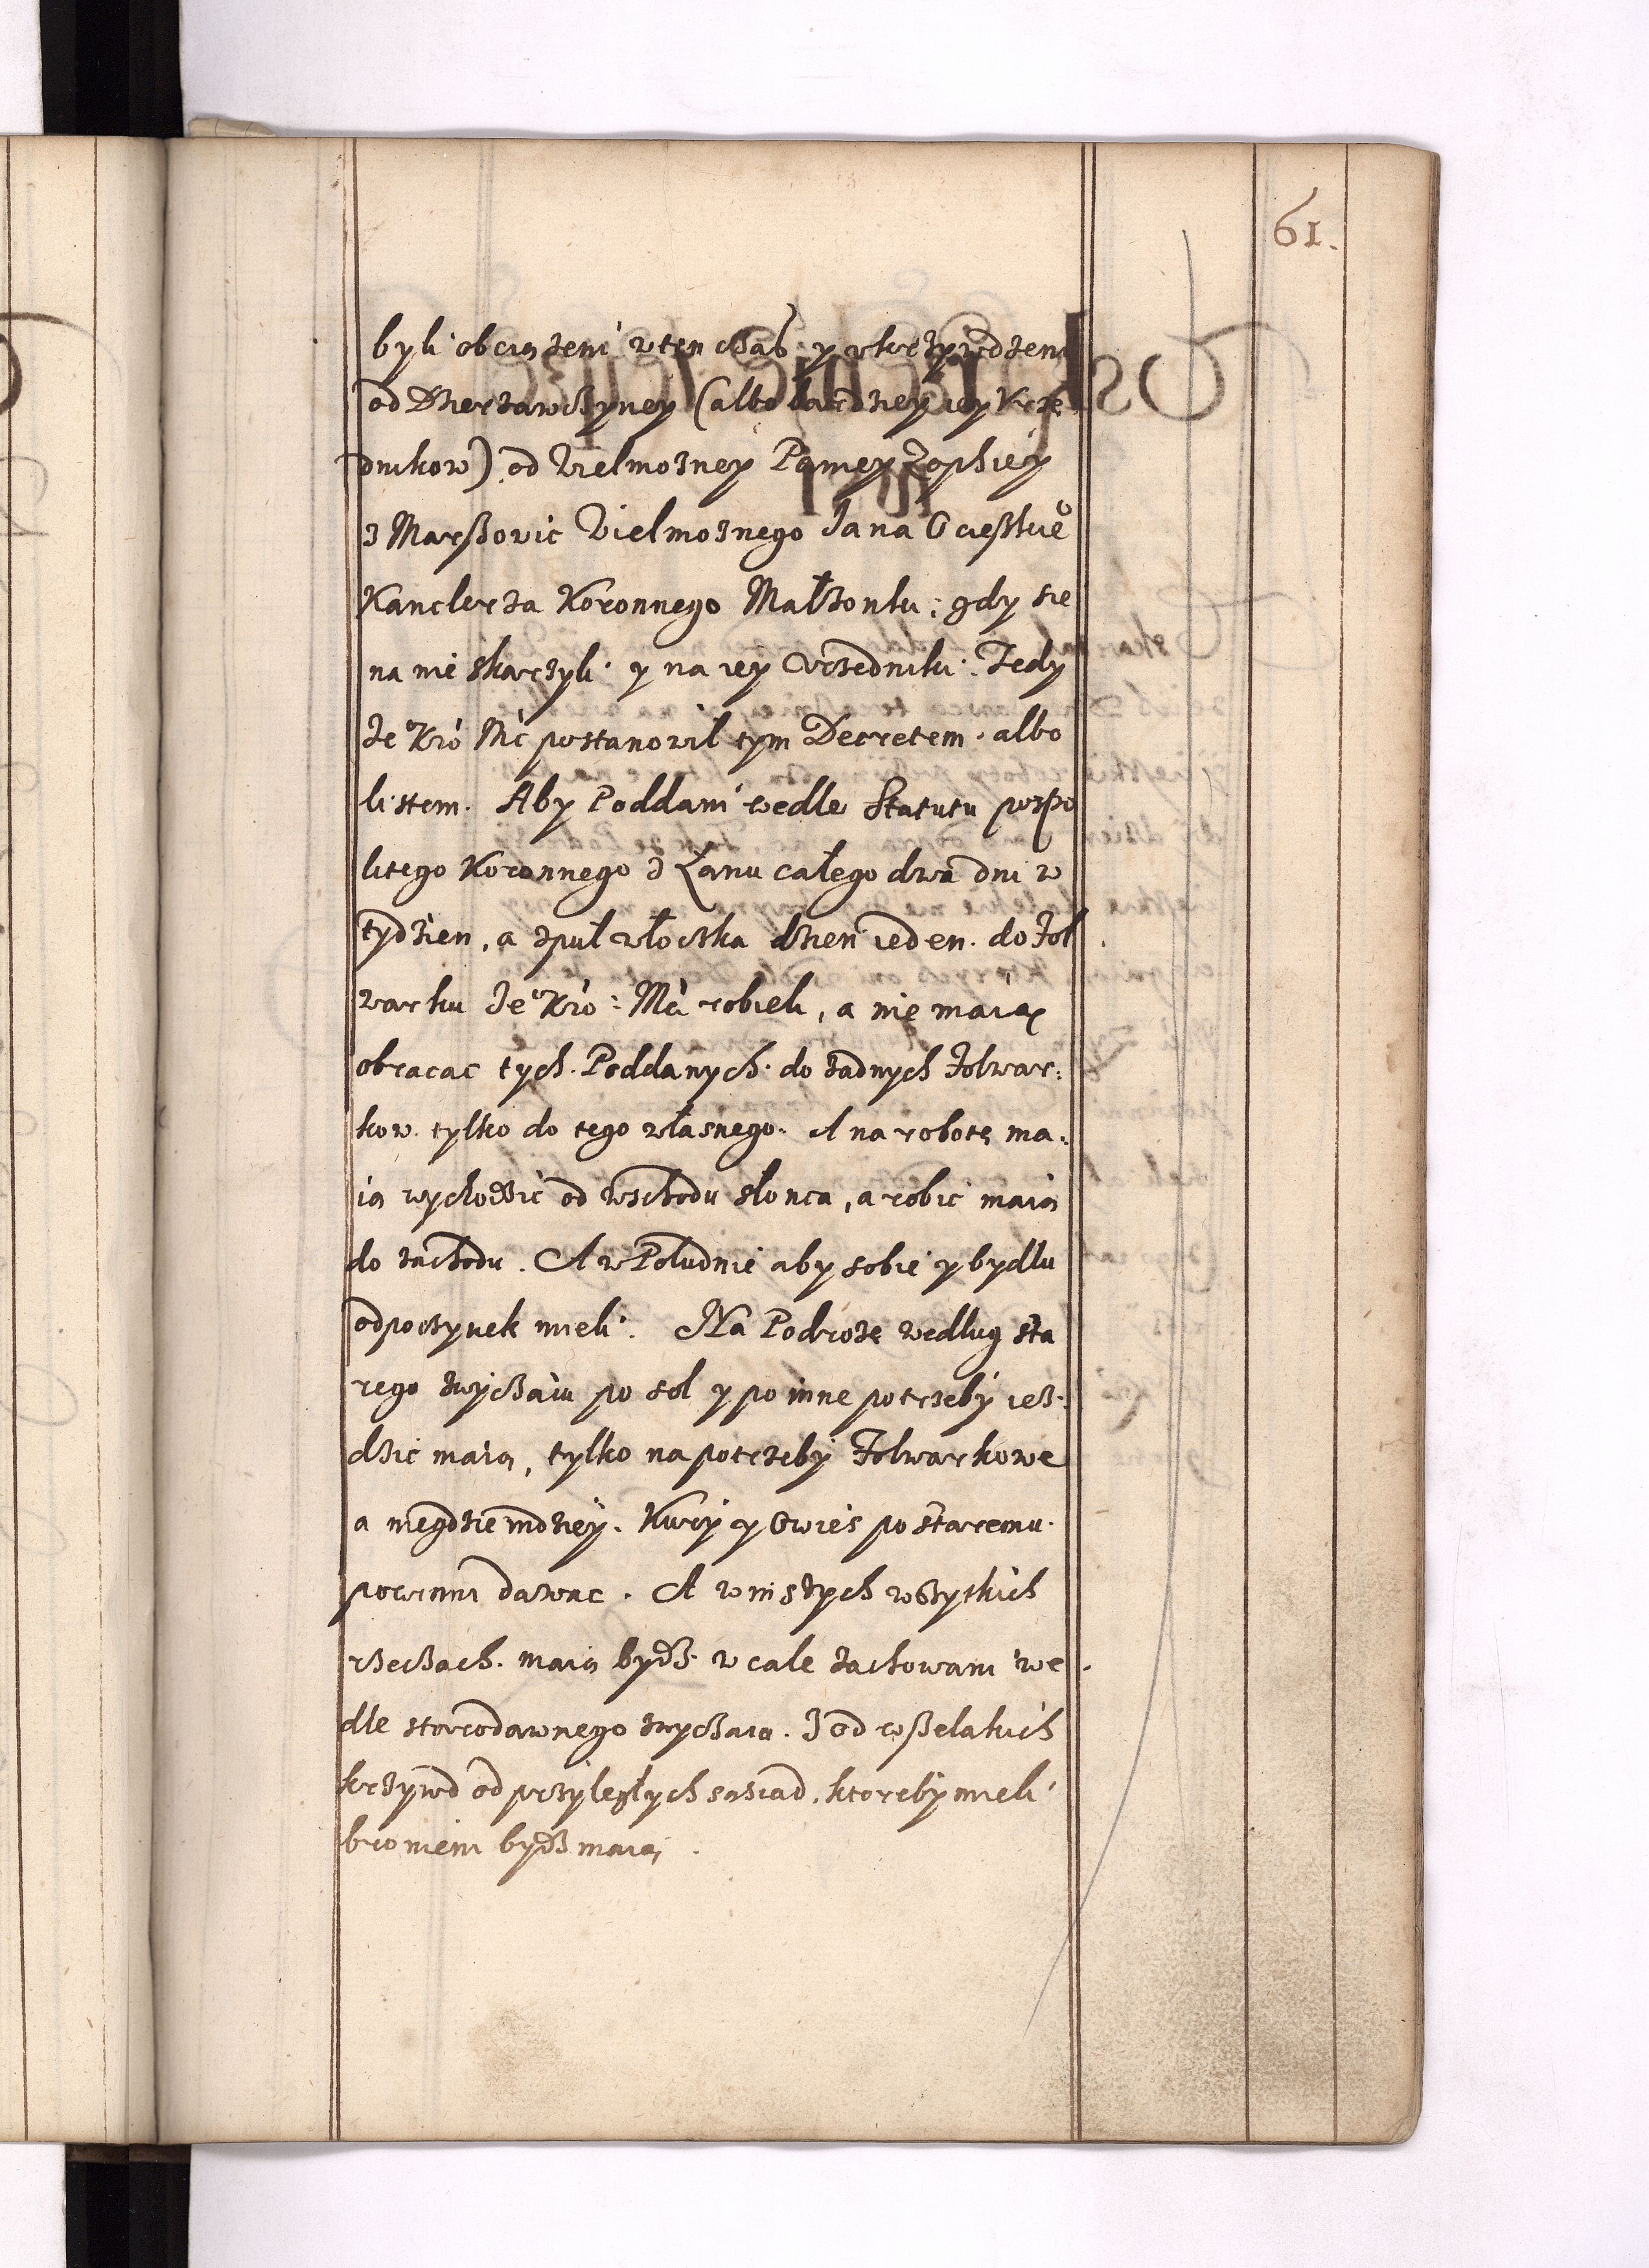 61.
byli obciązeni w ten czas y vkrzywdzeni
od Dzierzawczyney (albo bardziey iey Vrze
dnikow) od Wielmozney Paniey Zophiey
z Marszowic Wielmoznego Jana Ocieskie°
Kanclerza Koronnego Małzonki: gdy sie
na nie skarzyli y na iey Vrzedniki. Tedy
Je° Kro Mc postanowil tym Decretem albo
listem. Aby Poddani wedle Statutu pospo
litego Koronnego z Łanu całego dwa dni w
tydzien, a z puł włoczka dzien ieden do fol
warku Je° Kro: Mci robieli, a nie maią
obracac tych Poddanych do zadnych folwar:
kow tylko do tego własnego. A na robotę ma:
ią wychodzic od wschodu słonca, a robic maią
do zachodu. A w Południe aby sobie y bydlu
odpoczynek mieli. Na Podroze wedlug sta
rego zwyczaiu po sol y po inne potrzeby iez:
dzic maią, tylko na potrzeby folwarkowe
a niegdzie indziey. Kury y Owies po staremu
powinni dawac. A w inszych wszytkich
rzeczach maią bydz w cale zachowani we
dle starodawnego zwyczaiu. I od wszelakich
krzywd od przyległych sąsiad, ktoreby mieli
bronieni bydz maią.